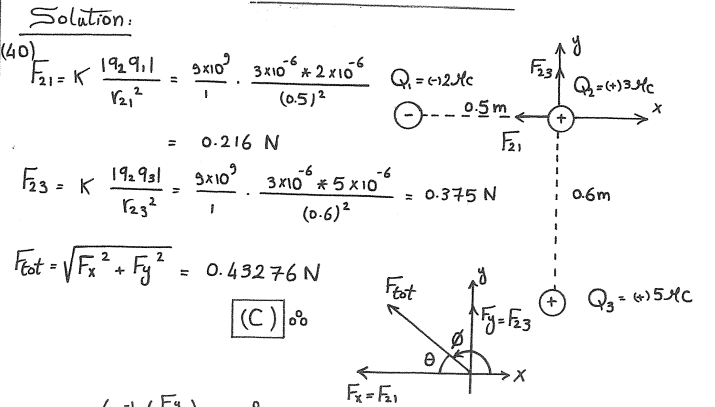 Solution:
(40)
F₂₁ = K |q₂q₁| / r₂₁² = 9x10⁹ / 1 . 3x10⁻⁶ * 2x10⁻⁶ / (0.5)²
= 0.216 N
F₂₃ = K |q₂q₃| / r₂₃² = 9x10⁹ / 1 . 3x10⁻⁶ * 5x10⁻⁶ / (0.6)² = 0.375 N
Ftot = √Fx² + Fy² = 0.43276 N
(C)
Q₁ = (-)2μc
-
0.5m
F₂₁
y
F₂₃
Q₂ = (+)3μc
+
x
0.6m
+
Q₃ = (+)5μC
Ftot
y
Fy = F₂₃
θ
Ø
x
Fx = F₂₁